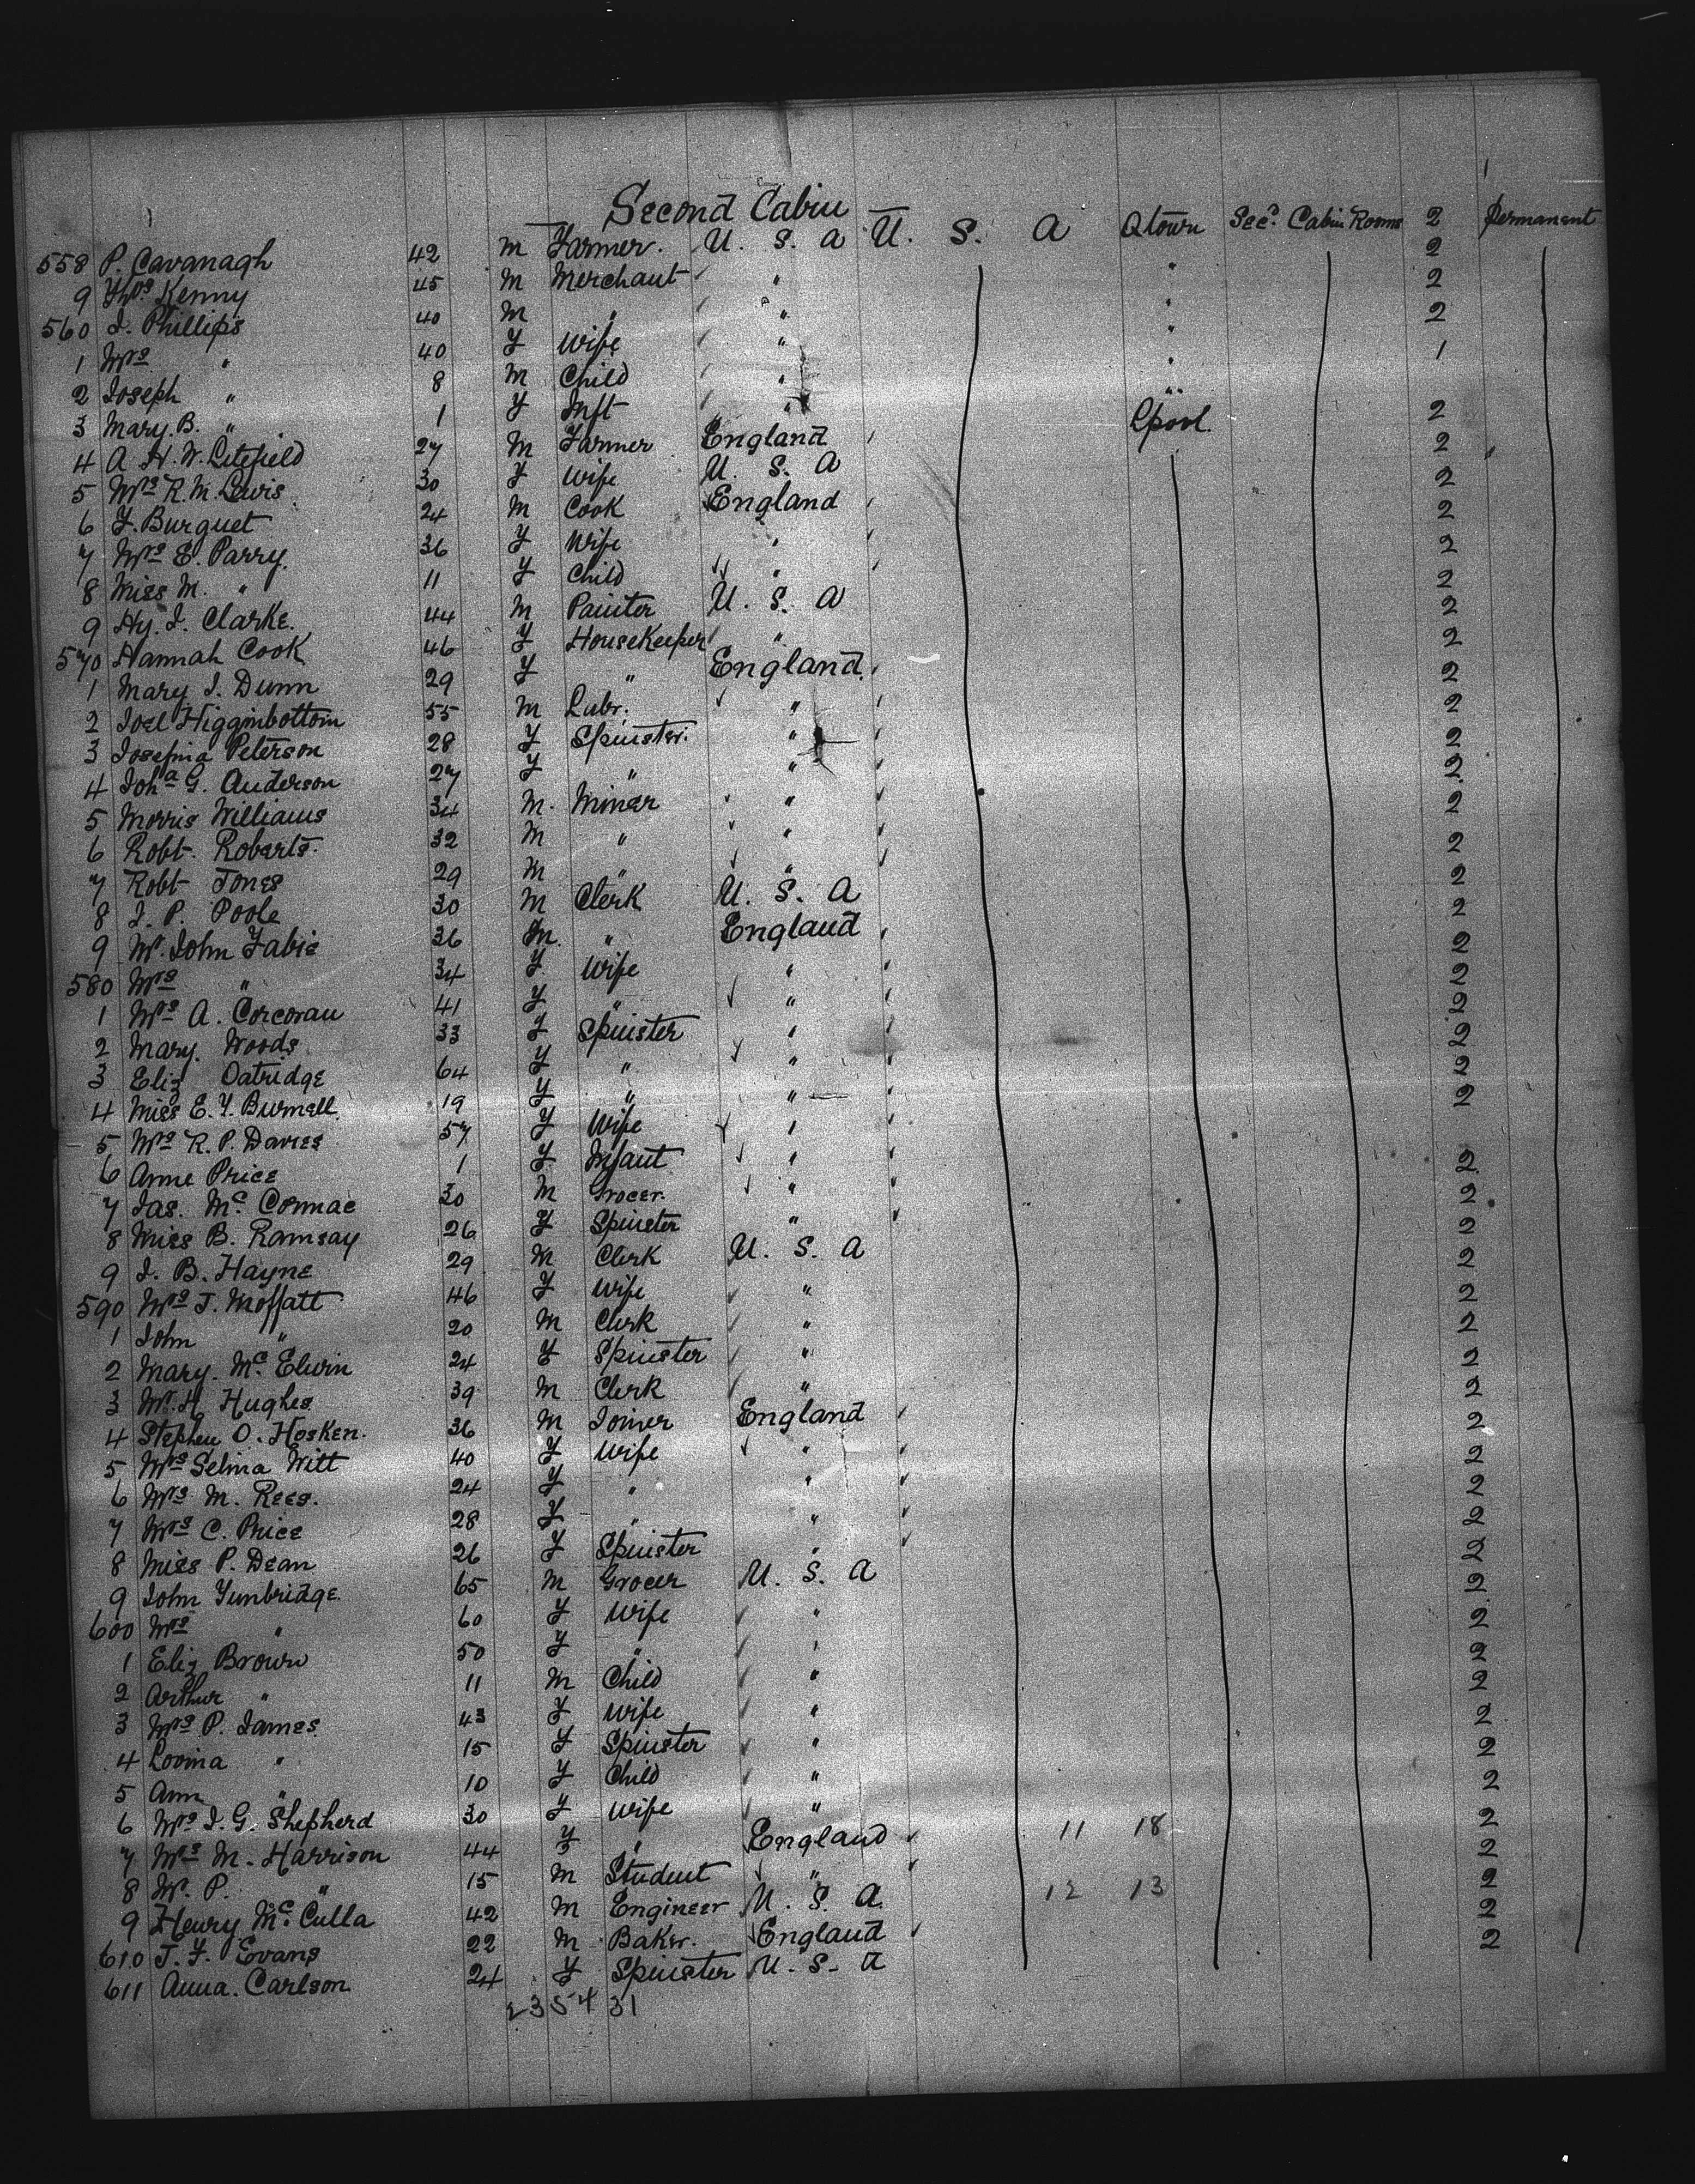 Second Cabin
558 P. Cavanagh 42 m Farmer. U. S. A U. S. A Qtown Secd Cabin Rooms 2 Permanent
9 Thos Kenny 45 m Merchant " " 2
560 J. Phillips 40 m " " " 2
1 Mrs " 40 F Wife " " 2
2 Joseph " 8 m Child " " 1
3 Mary. B. " 1 F Inft " "
4 A H. W. Litefield 27 m Farmer England Lpool. 2
5 Mrs R. M. Lewis 30 F Wife U. S. A 2
6 F. Burguet 24 m Cook England 2
7 Mrs E. Parry. 36 F Wife " 2
8 Miss M. " 11 F Child " 2
9 Hy. J. Clarke. 44 m Painter U. S. A 2
570 Hannah Cook 46 F Housekeeper " 2
1 Mary J. Dunn 29 F " England. 2
2 Joel Higginbottom 55 m Labr. " 2
3 Josefina Peterson 28 F Spinster. " 2
4 Joha G. Anderson 27 F " " 2
5 Morris Williams 34 m. Miner " 2
6 Robt. Roberts. 32 m " " 2
7 Robt Jones 29 m " " 2
8 J. P. Poole 30 m Clerk U. S. A 2
9 Mr. John Fabie 36 m. " England 2
580 Mrs " 34 F Wife " 2
1 Mrs A. Corcoran 41 F " " 2
2 Mary. Woods 33 F Spinster " 2
3 Eliz Oatridge 64 F " " 2
4 Miss E. F. Burnell 19 F " " 2
5 Mrs R. P. Davies 57 F Wife " 2
6 Anne Price 1 F Infant "
7 Jas. Mc Connac 30 m Grocer. " 2
8 Miss B. Ramsay 26 F Spinster " 2
9 J. B. Hayne 29 m Clerk U. S. A 2
590 Mrs J. Moffatt 46 F Wife " 2
1 John " 20 m Clerk " 2
2 Mary. Mc Elwin 24 F Spinster " 2
3 Mr. H Hughes 39 m Clerk " 2
4 Stephen O. Hosken. 36 m Joiner England 2
5 Mrs Selma Witt 40 F Wife " 2
6 Mrs M. Rees. 24 F " " 2
7 Mrs C. Price 28 F " " 2
8 Miss P. Dean 26 F Spinster " 2
9 John Tunbridge. 65 m Grocer U. S. A 2
600 Mrs " 60 F Wife " 2
1 Eliz Brown 50 F " " 2
2 Arthur " 11 m Child " 2
3 Mrs P. James 43 F Wife " 2
4 Lovina " 15 F Spinster " 2
5 Ann " 10 F Child " 2
6 Mrs J. G. Shepherd 30 F Wife " 2
7 Mrs M. Harrison 44 F " England 11 18 2
8 Mr. P. " 15 m Student " 2
9 Henry Mc Culla 42 m Engineer U. S. A. 12 13 2
610 J. F. Evans 22 m Baker. England 2
611 Anna. Carlson 24 F Spinster U. S. A 2
23 54 31